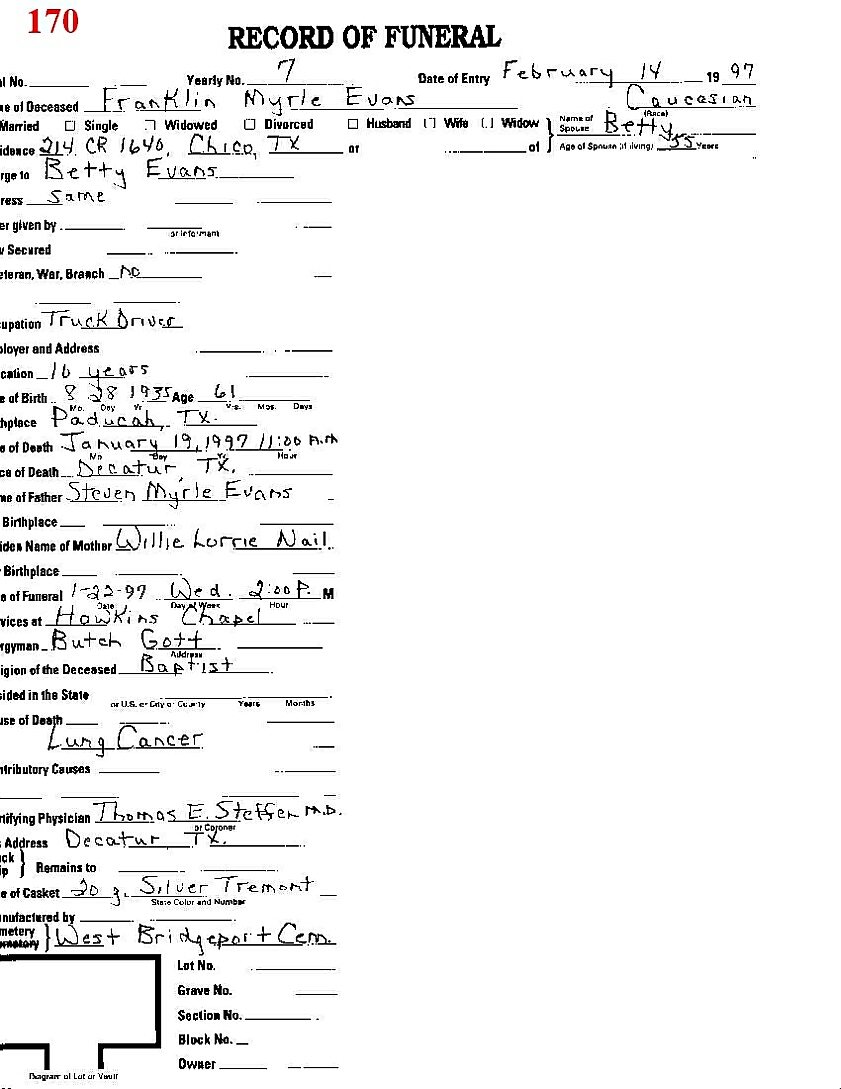 170
RECORD OF FUNERAL
l No. Yearly No. 7 Date of Entry February 14 19 97
me of Deceased Franklin Myrle Evans Caucasian
(Race)
Married Single Widowed Divorced Husband Wife Widow } Name of Spouse Betty
idence 214 CR 1640, Chico, TX or of } Age of Spouse (if living) 55 Years
rge to Betty Evans
ress Same
er given by
or Informant
v Secured
eteran, War, Branch No
cupation Truck Driver
ployer and Address
cation 16 years
e of Birth 8 28 1935 Age 61
Mo. Day Yr Yrs. Mos. Days
hplace Paducah, TX.
e of Death January 19, 1997 11:00 A.M
Mo Day Yr. Hour
ce of Death Decatur, TX.
me of Father Steven Myrle Evans
Birthplace
iden Name of Mother Willie Lorrie Nail
Birthplace
e of Funeral 1-22-97 Wed. 2:00 P. M
Date Day of Week Hour
vices at Hawkins Chapel
rgyman Butch Gott
Address
igion of the Deceased Baptist
sided in the State
or U.S. or City or County Years Months
use of Death
Lung Cancer
ntributory Causes
rtifying Physician Thomas E. Steffen M.D.
or Coroner
s Address Decatur, TX.
ck
ip } Remains to
e of Casket 20 g. Silver Tremont
State Color and Number
nufactured by
metery
ematory } West Bridgeport Cem.
Lot No.
Grave No.
Section No.
Block No.
Owner
Diagram of Lot or Vault